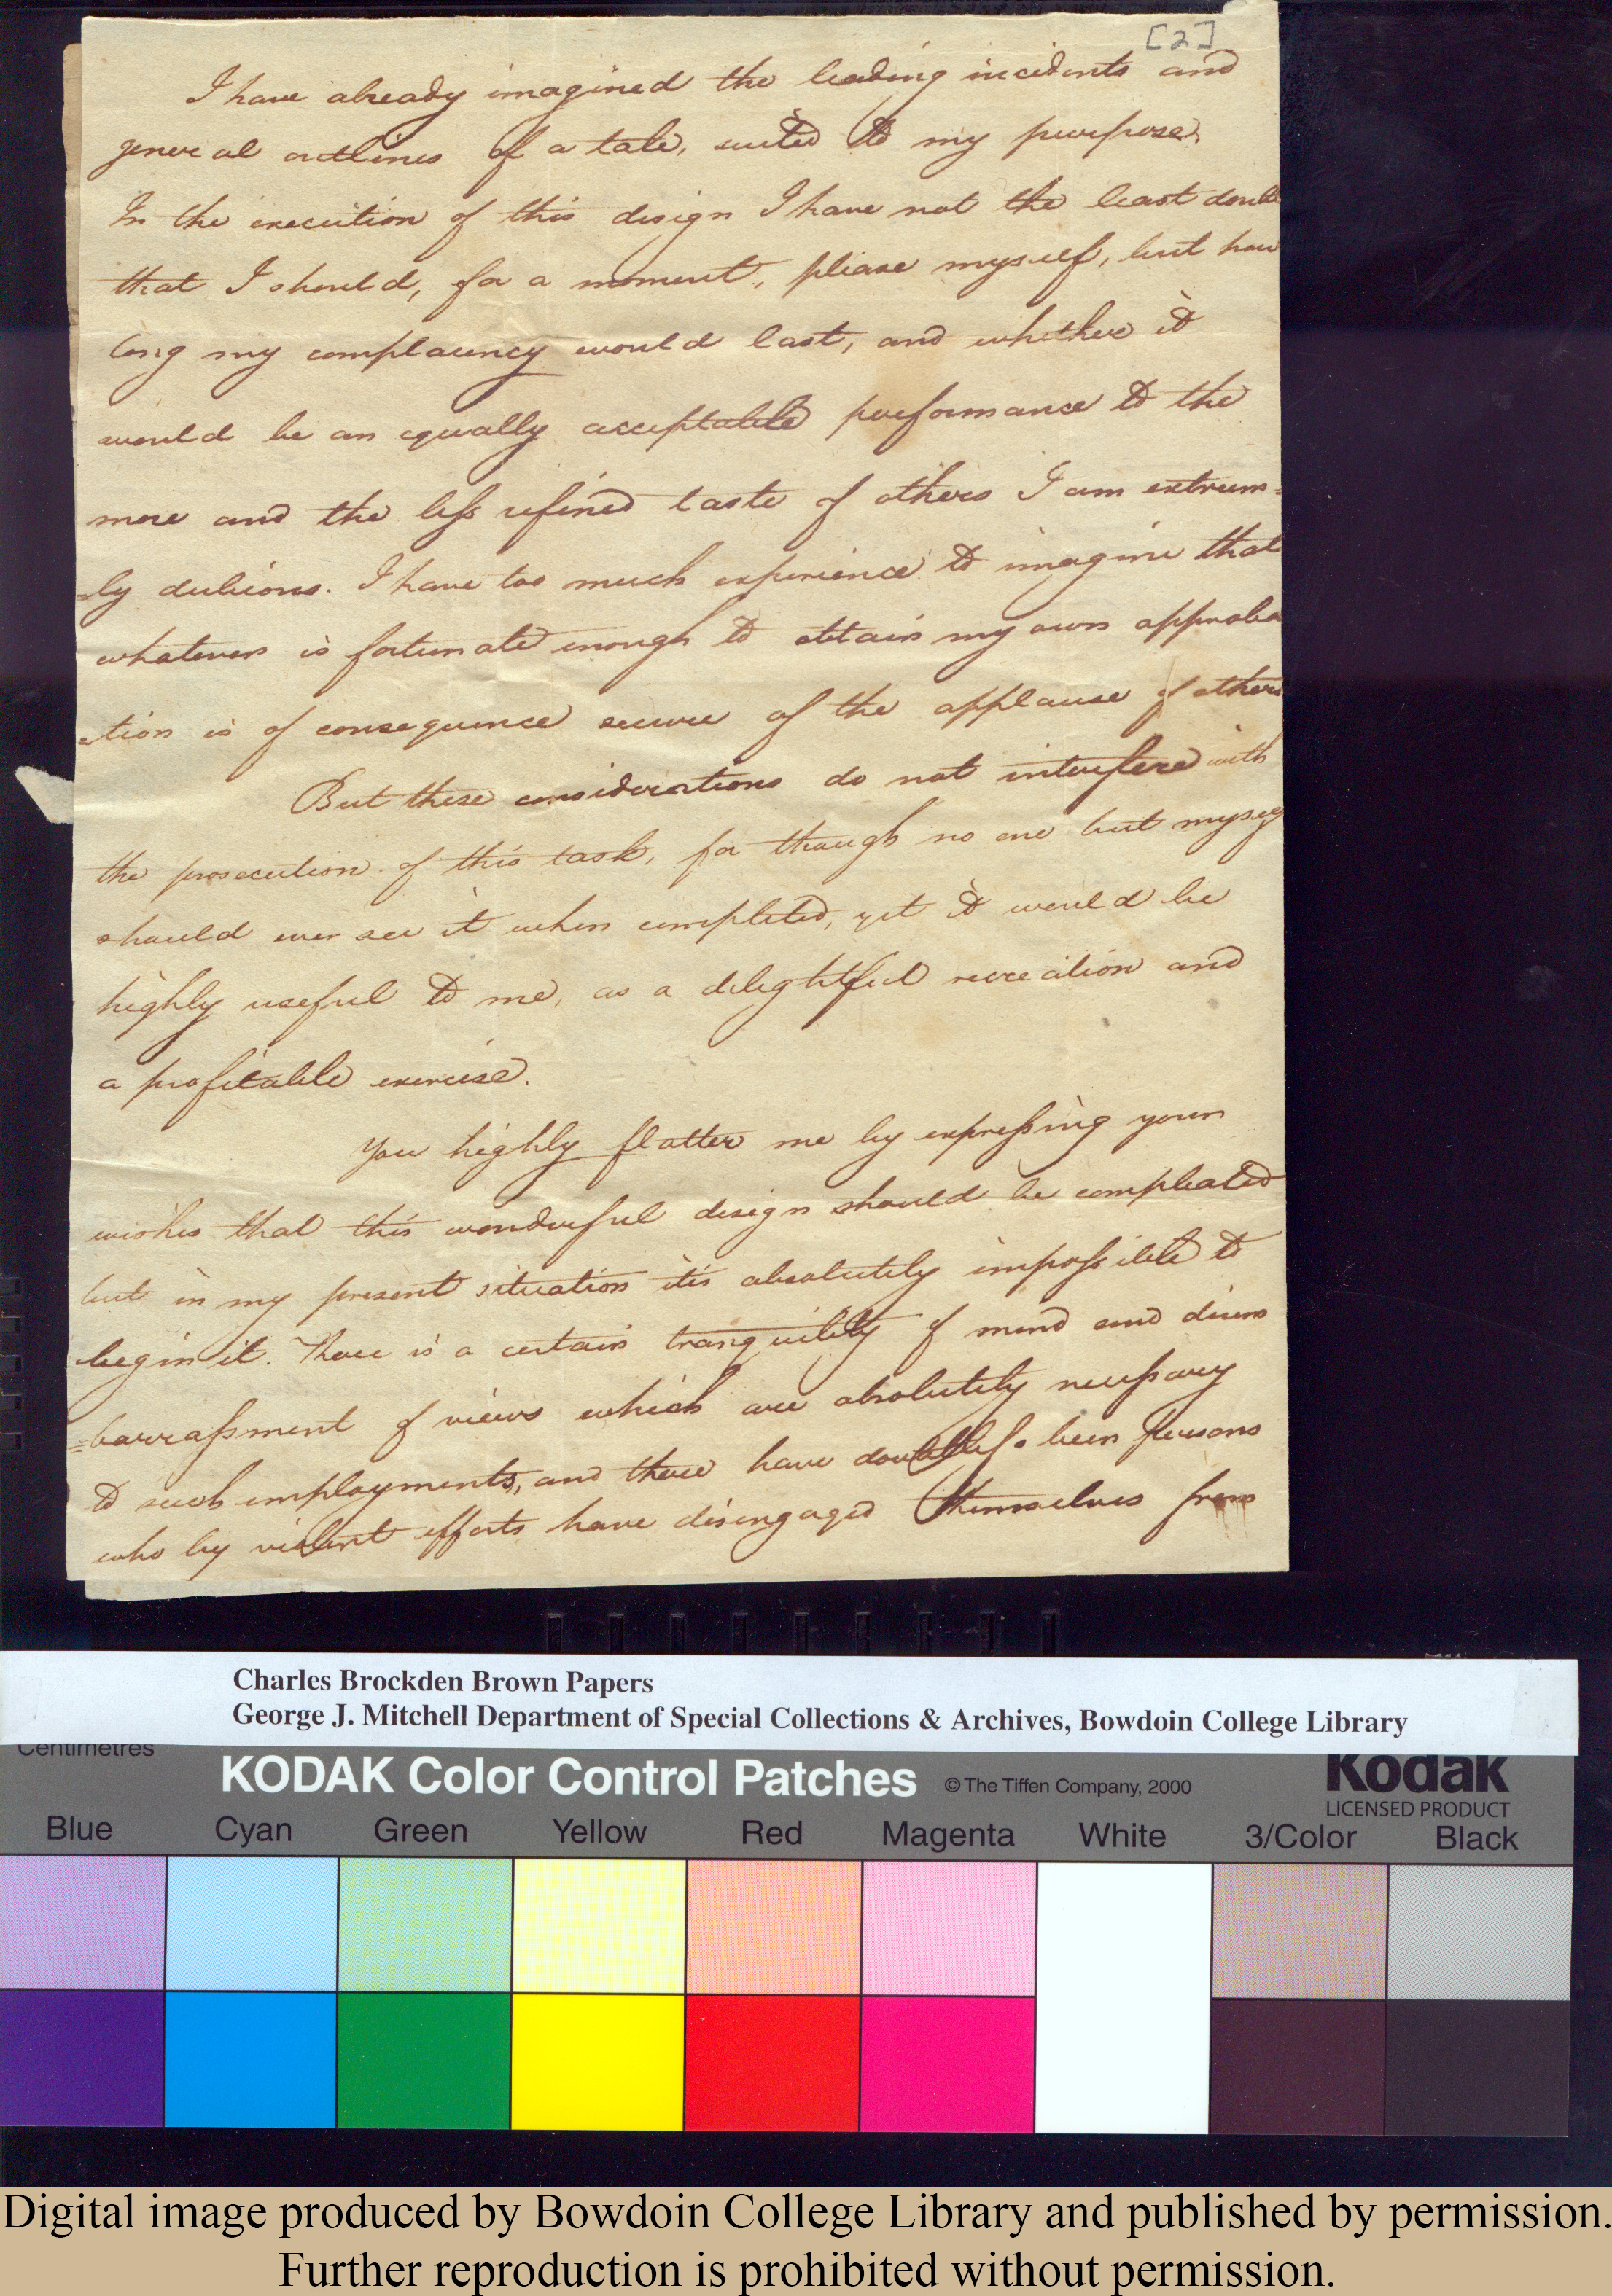 [2]
I have already imagined the leading incidents and
general outlines of a tale, suited to my purpose.
In the execution of this design I have not the least doubt
that I should, for a moment, please myself, but how
long my complacency would last, and whether it
would be an equally acceptable performance to the
more and the less refined taste of others I am extreem=
=ly dubious. I have too much experience to imagine that
whatever is fortunate enough to obtain my own approba
=tion is of consequence secure of the applause of others
But these considerations do not interfere with
the prosecution of this task, for though no one but myself
should ever see it when completed, yet it would be
highly useful to me, as a delightful recreation and
a profitable exercise.
You highly flatter me by expressing your
wishes that this wonderful design should be compleated
but in my present situation it is absolutely impossible to
begin it. There is a certain tranquility of mind and disem
=barrassment of views which are absolutely necessary
to such employments, and there have doubtless been persons
who by violent efforts have disengaged themselves from
Charles Brockden Brown Papers
George J. Mitchell Department of Special Collections & Archives, Bowdoin College Library
Centimetres
KODAK Color Control Patches © The Tiffen Company, 2000 Kodak
LICENSED PRODUCT
Blue Cyan Green Yellow Red Magenta White 3/Color Black
Digital image produced by Bowdoin College Library and published by permission.
Further reproduction is prohibited without permission.